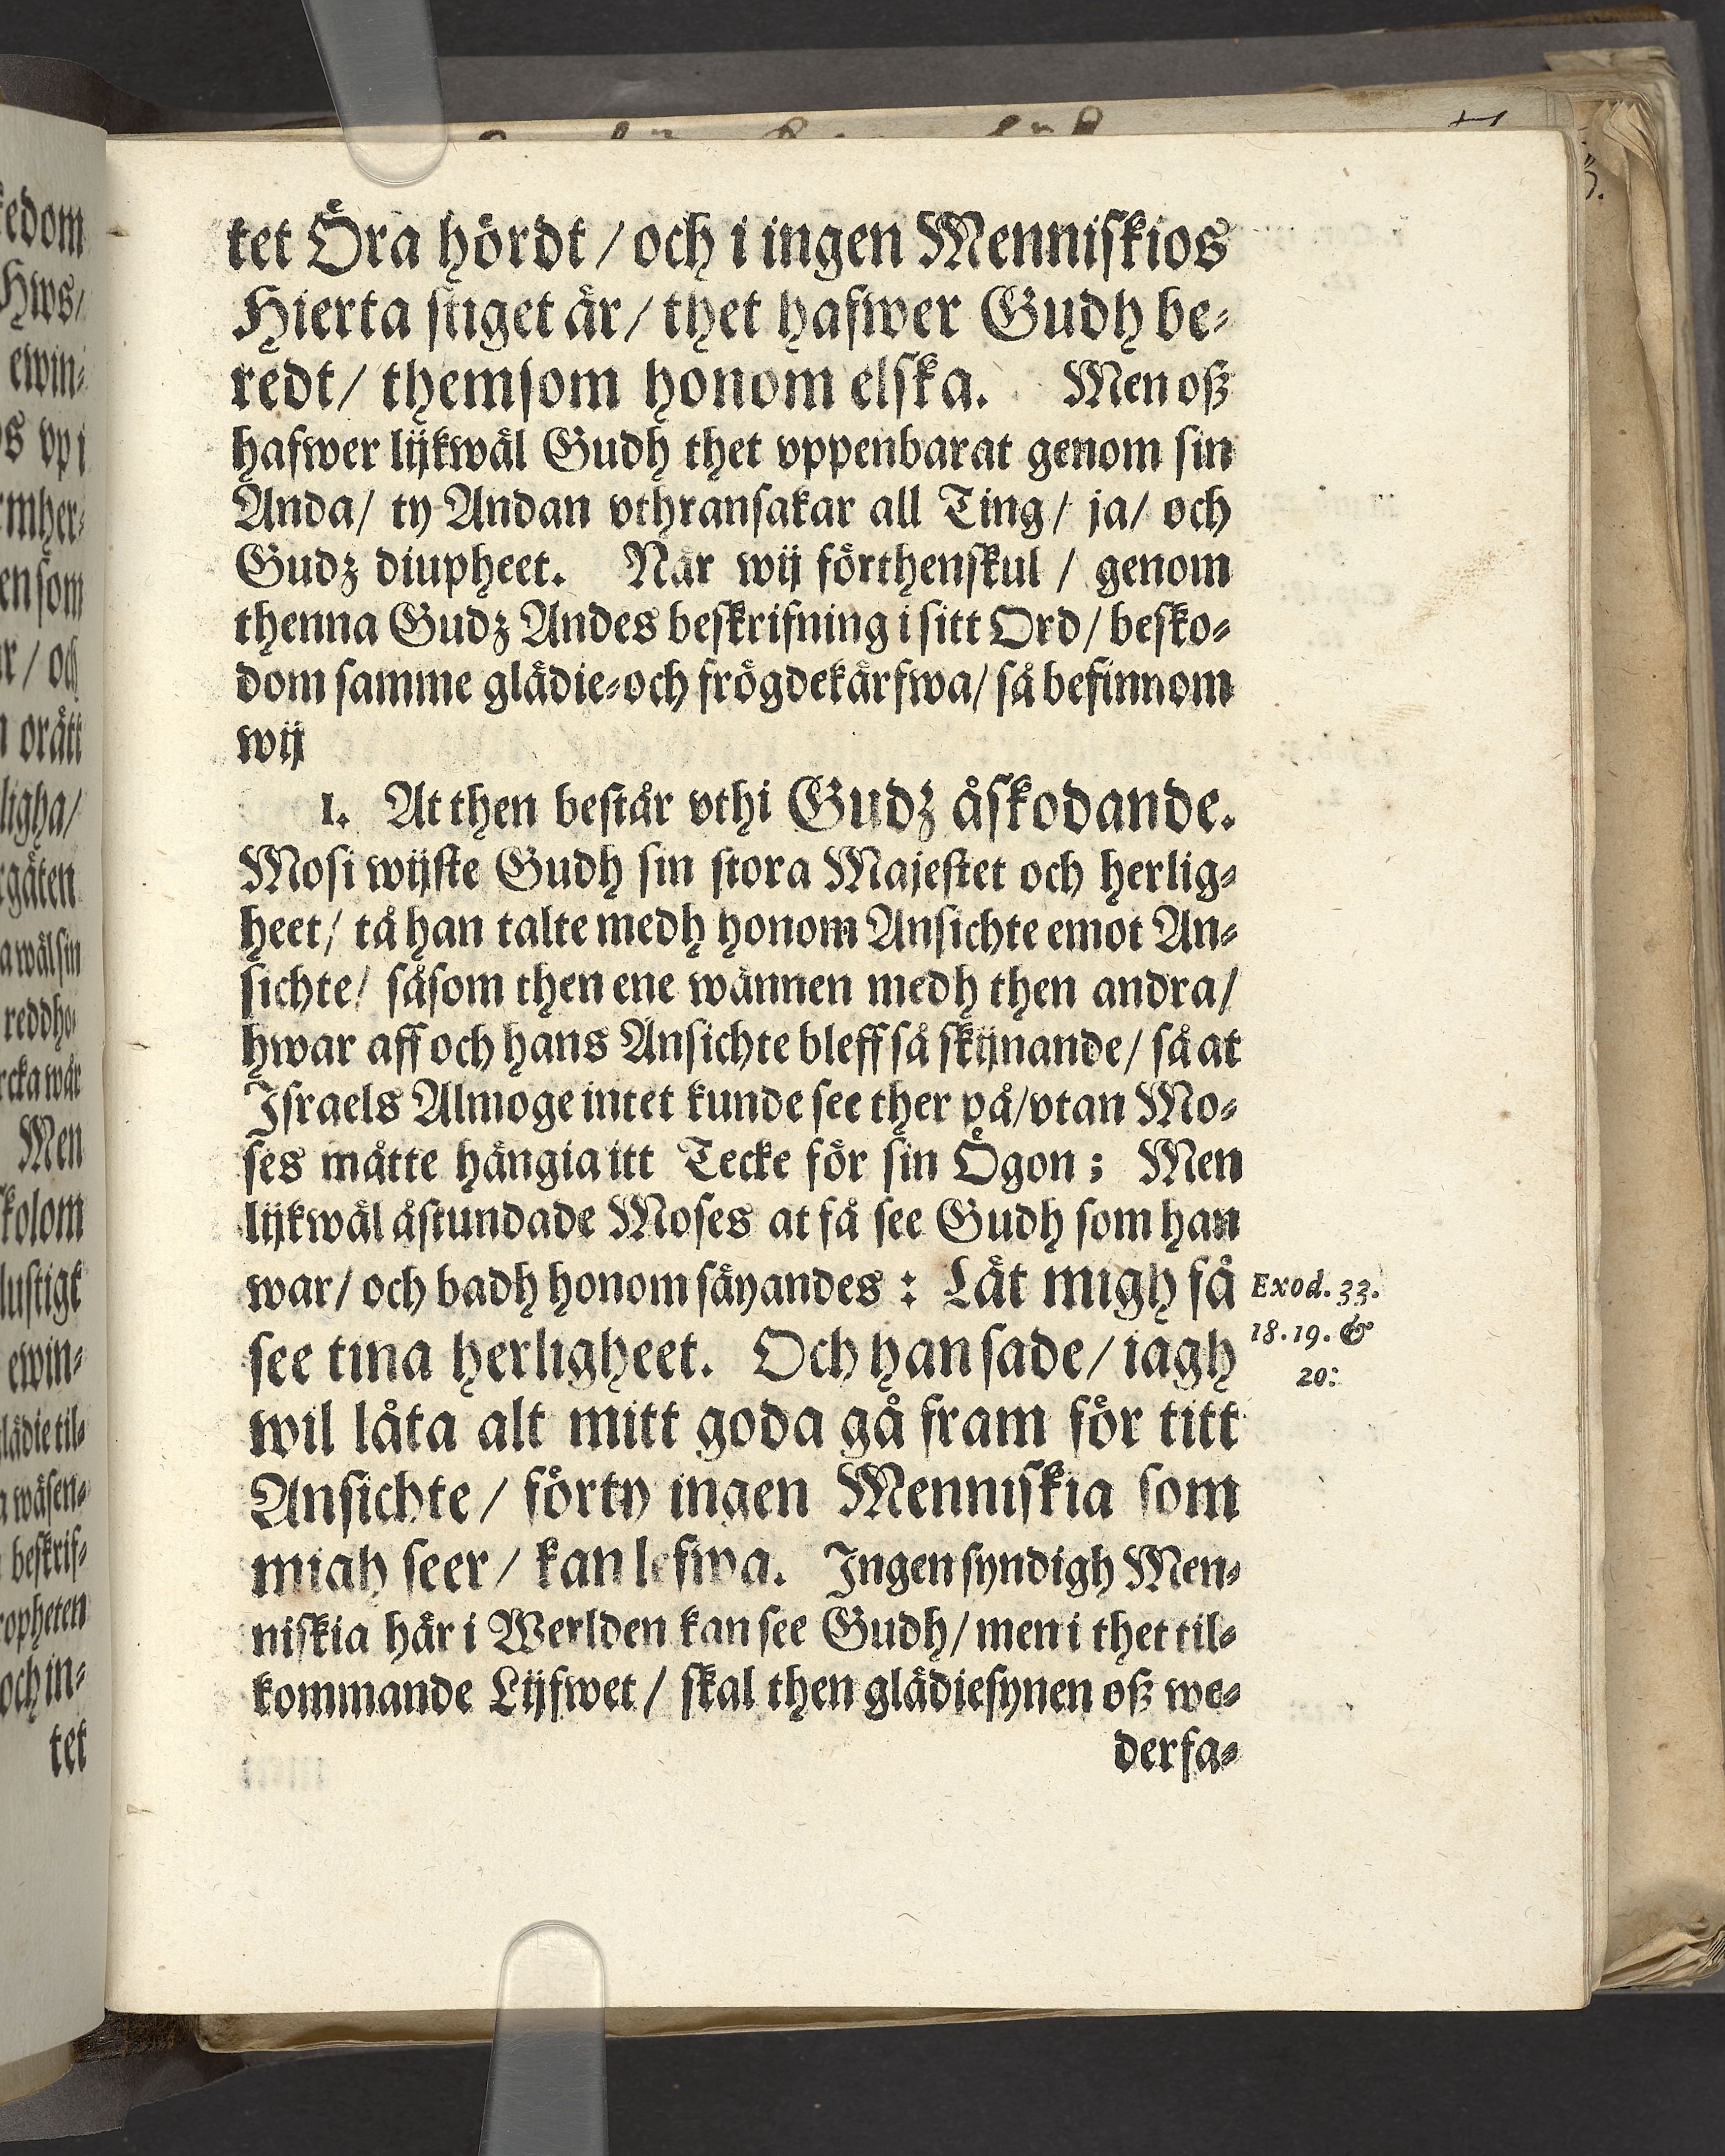 tet Öra hördt / och i ingen Menniskios
Hierta stiget är / thet hafwer Gudh be-
redt / themsom honom elska. Men oß
hafwer lijkwäl Gudh thet vppenbarat genom sin
Anda / ty Andan vthransakar all Ting / ja / och
Gudz diupheet. När wij förthenskul / genom
thenna Gudz Andes beskrifning i sitt Ord / besko-
dom samme glädie-och frögdekärfwa / så befinnom
wij
1. At then består vthi Gudz åskodande.
Mosi wijste Gudh sin stora Majestet och herlig-
heet / tå han talte medh honom Ansichte emot An-
sichte / såsom then ene wännen medh then andra /
hwar aff och hans Ansichte bleff så skijnande / så at
Israels Almoge intet kunde see ther på / vtan Mo-
ses måtte hängia itt Tecke för sin Ögon ; Men
lijkwäl åstundade Moses at få see Gudh som han
war / och badh honom säyandes : Låt migh få
see tina herligheet. Och han sade / iagh
wil låta alt mitt goda gå fram för titt
Ansichte / förty ingen Menniskia som
migh seer / kan lefwa. Ingen syndigh Men-
niskia här i Werlden kan see Gudh / men i thet til-
kommande Lijfwet / skal then glädiesynen oß we-
derfa-
Exod. 33.
18. 19. &
20:
ewin-
Men
kolom
lustigt
ewin-
tet